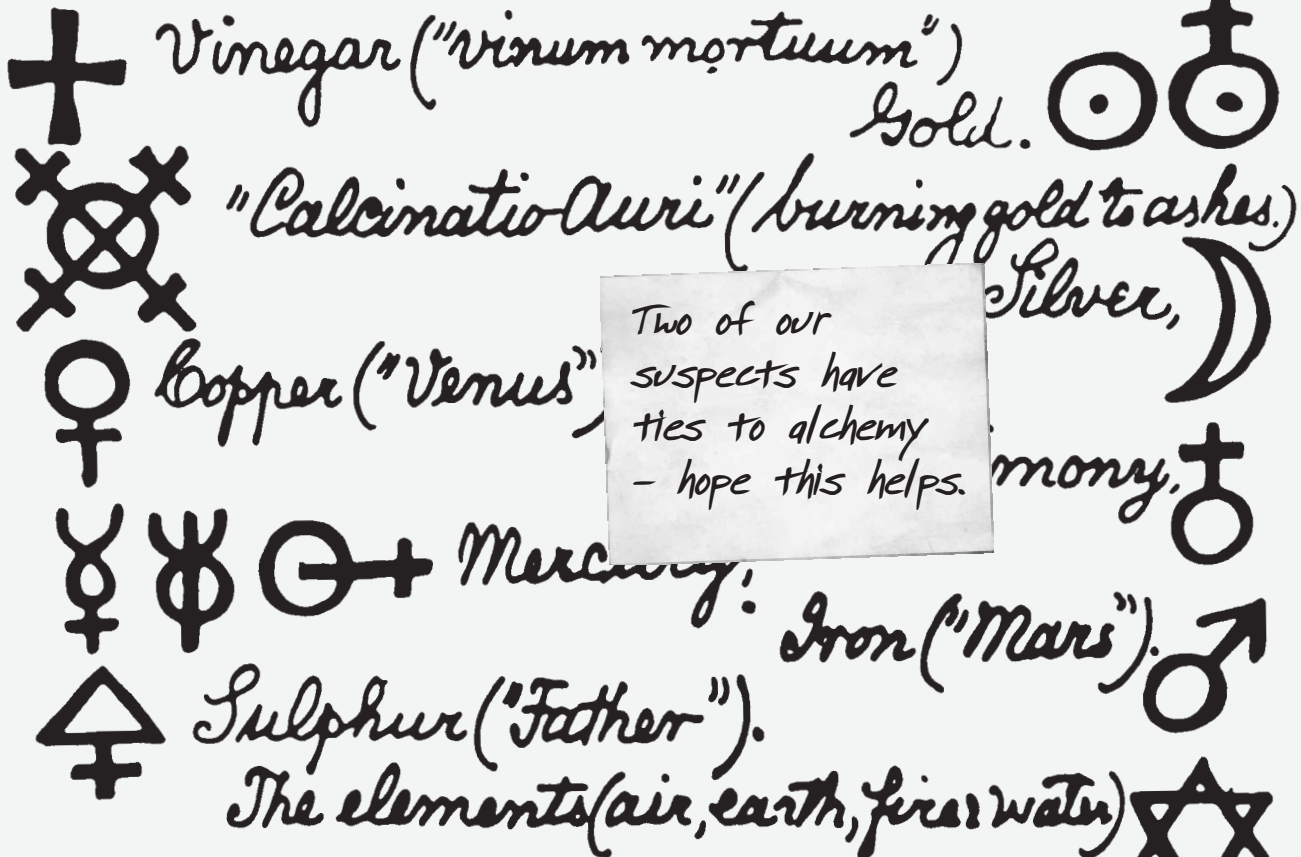 Vinegar ("vinum mortuum")
Gold.
"Calcinatio Auri" (burning gold to ashes.)
Silver,
Two of our
suspects have
ties to alchemy
– hope this helps.
Copper ("Venus")
mony,
Mercury,
Iron ("Mars").
Sulphur ("Father").
The elements (air, earth, fire, water)